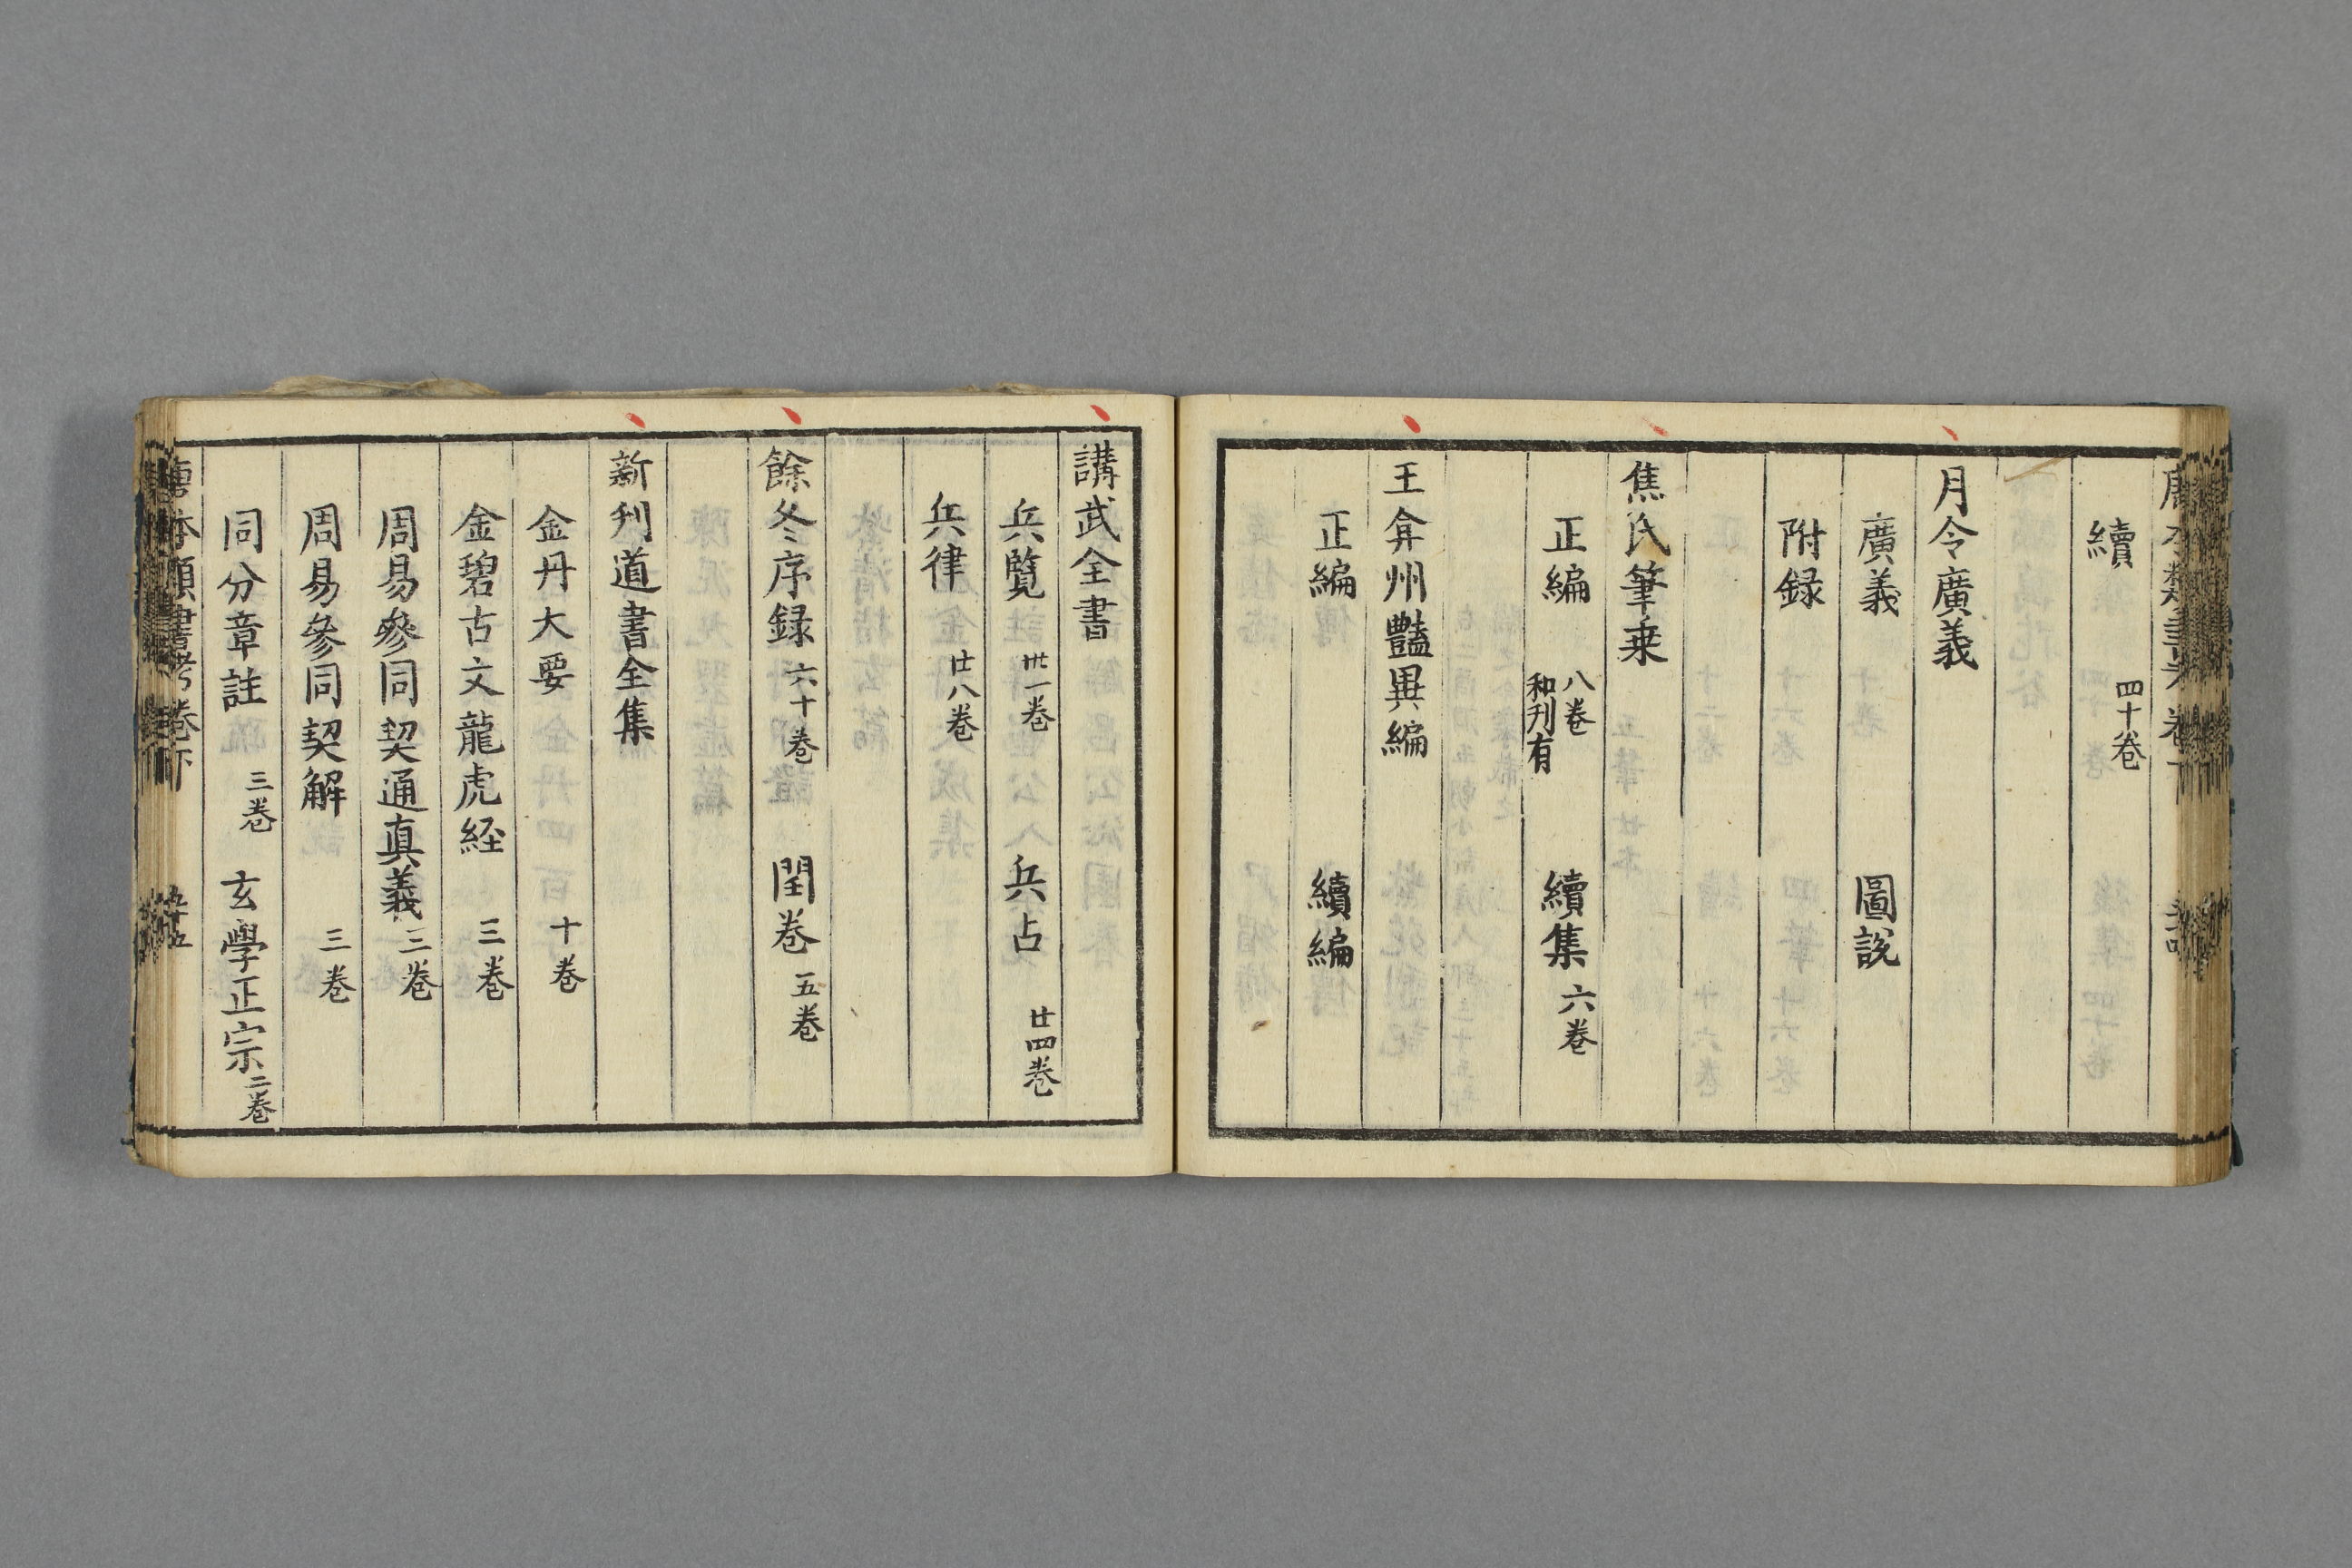 續 四十卷
月令廣義
廣義 圖説
附録
焦氏筆乗
正編 八卷 和刋有 續集 六卷
王弇州豔異編
正編 續編
講武全書
兵覽 卅一卷 兵占 廿四卷
兵律 廿八卷
餘冬序録 六十卷 閏卷 五卷
新刋道書全集
金丹大要 十卷
金碧古文龍虎経 三卷
周易參同契通真義 三卷
周易參同契解 三卷
同分章註 三卷 玄學正宗 二卷
唐本類書考卷下